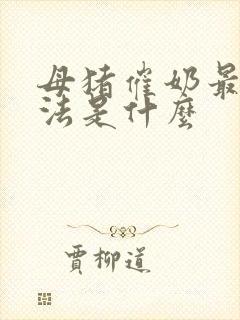 母猪催奶最
法是什麽
賈柳道